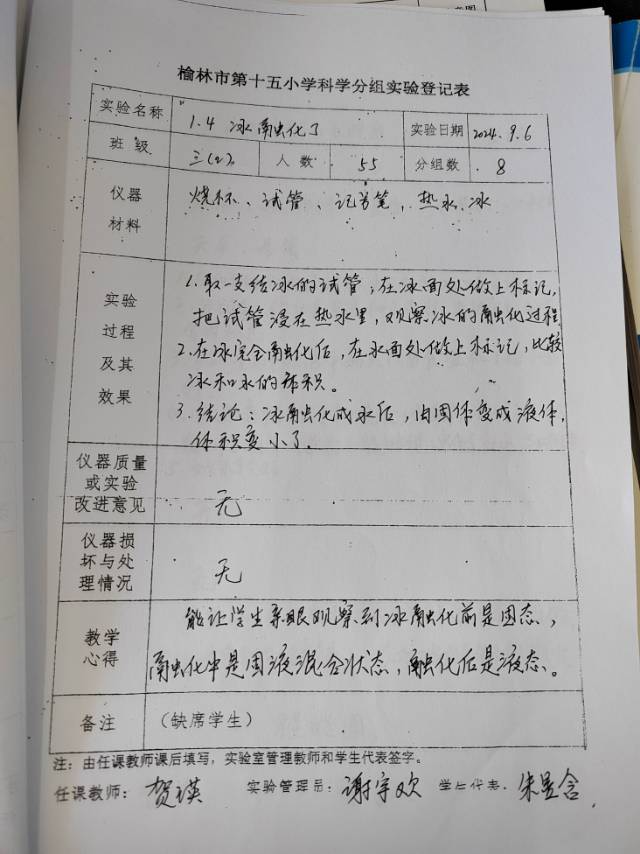 榆林市第十五小学科学分组实验登记表
实验名称 1.4 冰融化了 实验日期 2024.9.6
班级 三(2) 人数 55 分组数 8
仪器材料 烧杯、试管、记号笔，热水，冰
实验过程及其效果
1.取一支结冰的试管，在冰面处做上标记，
把试管浸在热水里，观察冰的融化过程
2.在冰完全融化后，在水面处做上标记，比较
冰和水的体积。
3.结论：冰融化成水后，由固体变成液体，
体积变小了。
仪器质量或实验改进意见 无
仪器损坏与处理情况 无
教学心得
能让学生亲眼观察到冰融化前是固态，
融化中是固液混合状态，融化后是液态。
备注 （缺席学生）
注：由任课教师课后填写，实验室管理教师和学生代表签字。
任课教师：贺瑛 实验管理员：谢宇欢 学生代表：朱昱含